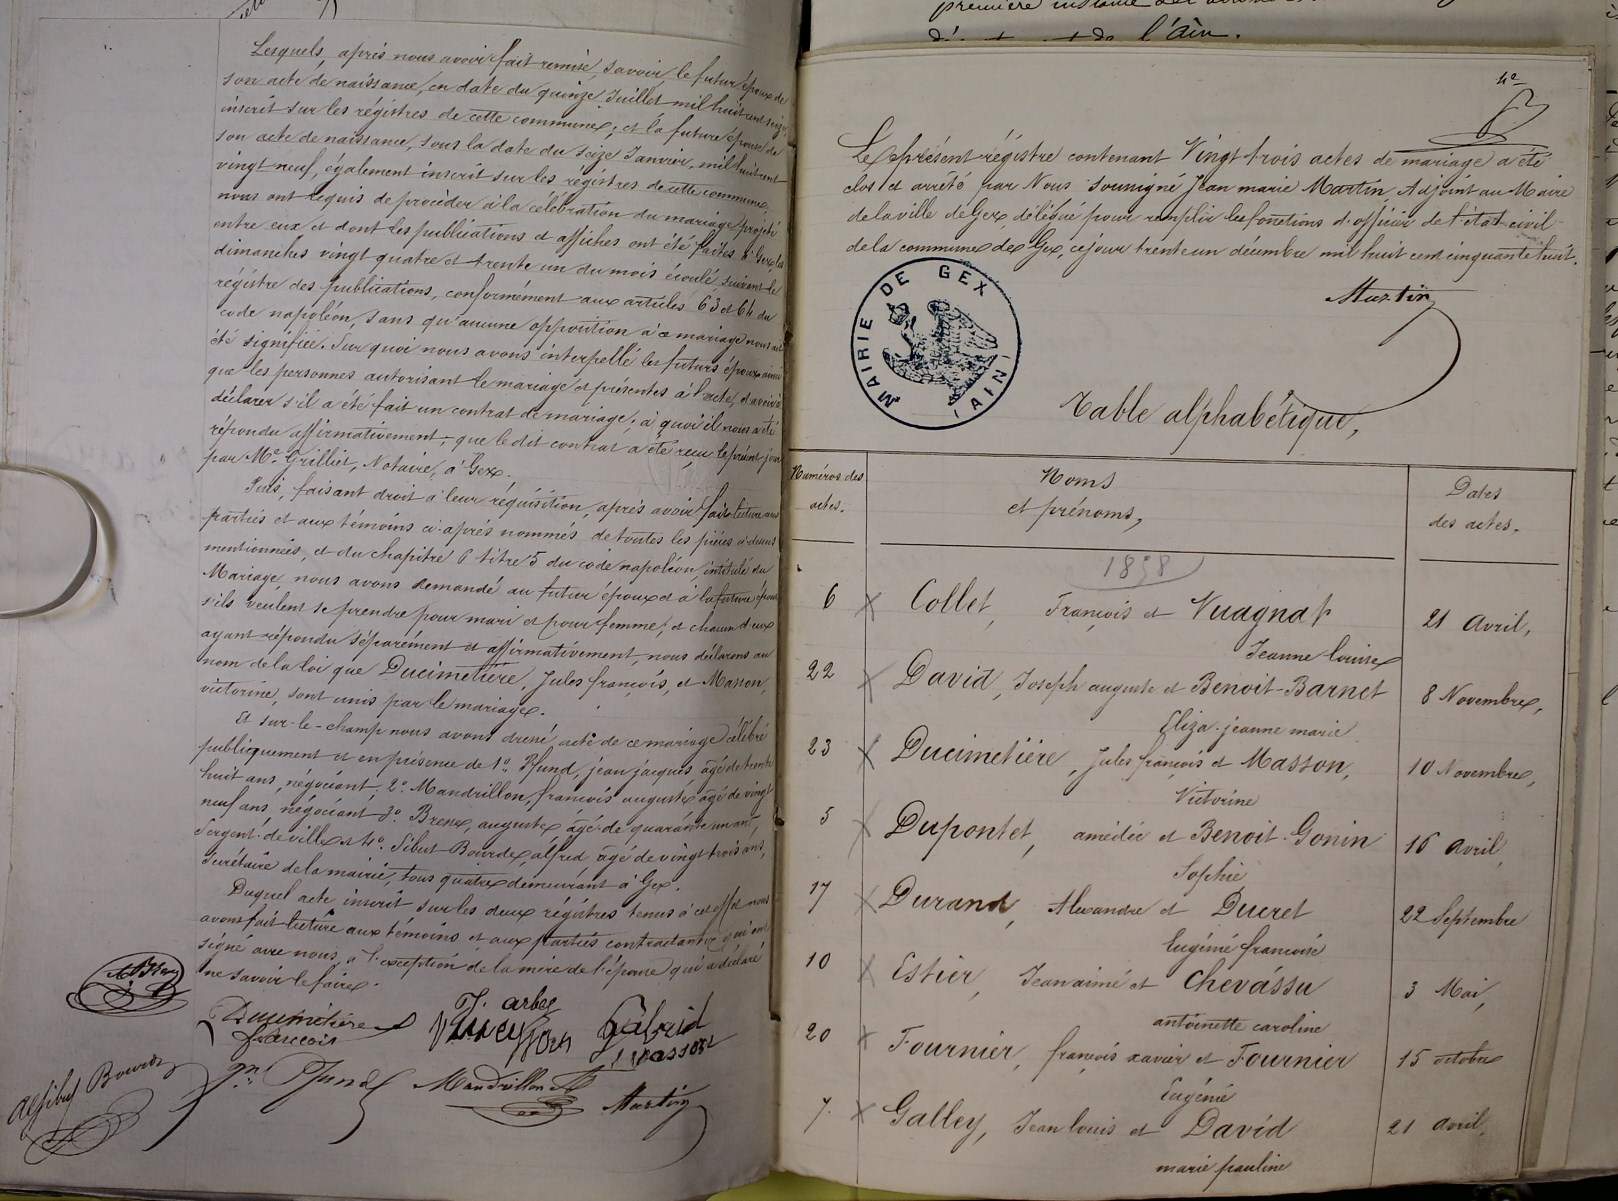 Lesquels, après nous avoir fait remise, savoir, le futur époux de
son acte de naissance, en date du quinze Juillet mil huit cent seize
inscrit sur les régistres de cette commune; et la future épouse de
son acte de naissance, sous la date du seize Janvier, mil huit cent
vingt neuf, également inscrit sur les régistres de cette commune,
nous ont requis de procéder à la célébration du mariage projeté
entre eux et dont les publications et affiches ont été faites à Gex les
dimanches vingt quatre et trente un du mois écoulé, suivant le
régistre des publications, conformément aux articles 63 et 64 du
code napoléon, sans qu'aucune opposition à ce mariage nous ait
été signifiée. Sur quoi nous avons interpellé les futurs époux ainsi
que les personnes autorisant le mariage et présentes à l'acte, d'avoir à
déclarer s'il a été fait un contrat de mariage; à quoi il nous a été
répondu affirmativement, que le dit contrat a été reçu le présent jour
par Me Grilliet, Notaire, à Gex.
Puis, faisant droit à leur réquisition, après avoir fait lecture aux
parties et aux témoins ci-après nommés de toutes les pièces ci-dessus
mentionnées, et du chapitre 6 titre 5 du code napoléon, intitulé du
Mariage, nous avons demandé au futur époux et à la future épouse
s'ils veulent se prendre pour mari et pour femme; et chacun d'eux
ayant répondu séparément et affirmativement, nous déclarons au
nom de la loi que Ducimetière, Jules françois, et Masson,
victorine, sont unis par le mariage.
Et sur-le-champ nous avons dressé acte de ce mariage célébré
publiquement et en présence de 1o. Pfund, jean jacques âgé de trente
huit ans, négociant, 2o. Mandrillon, françois auguste âgé de vingt
neuf ans, négociant 3o. Brene, auguste, âgé de quarante un ans,
Sergent de ville et 4o. Sibut-Bourde, alfred âgé de vingt trois ans,
secrétaire de la mairie, tous quatre demeurant à Gex.
Duquel acte inscrit sur les deux régistres tenus à cet effet nous
avons fait lecture aux témoins et aux parties contractantes qui ont
signé avec nous, à l'exception de la mère de l'épouse qui a déclaré
ne savoir le faire.
Ducimetière
françois
J. arbez
Gabrid
masson
Pfund
Mandrillon
Martin
première instance
l'Ain.
Le présent régistre contenant Vingt trois actes de mariage a été
clos et arrêté par Nous soussigné Jean marie Martin, Adjoint au Maire
de la ville de Gex, délégué pour remplir les fonctions d'officier de l'état civil
de la commune de Gex, ce jour trente un décembre mil huit cent cinquante huit.
Martin
MAIRIE DE GEX
(AIN)
Table alphabétique,
Numéros des
actes.
Noms
et prénoms,
Dates
des actes.
1858
6 Collet, François et Vuagnat 21 Avril,
Jeanne louise
22 David, Joseph auguste et Benoit-Barnet 8 Novembre,
Eliza-jeanne marie
23 Ducimetière, Jules françois et Masson, 10 Novembre,
Victorine
5 Dupontet, amédée et Benoit-Gonin 16 avril,
Sophie
17 Durand, Alexandre et Ducret 22 Septembre
Eugénie françoise
10 Estier, Jean aimé et Chevassu 3 Mai,
antoinette caroline
20 Fournier, françois xavier et Fournier 15 octobre
Eugénie
7. Galley, Jean louis et David 21 avril.
marie pauline